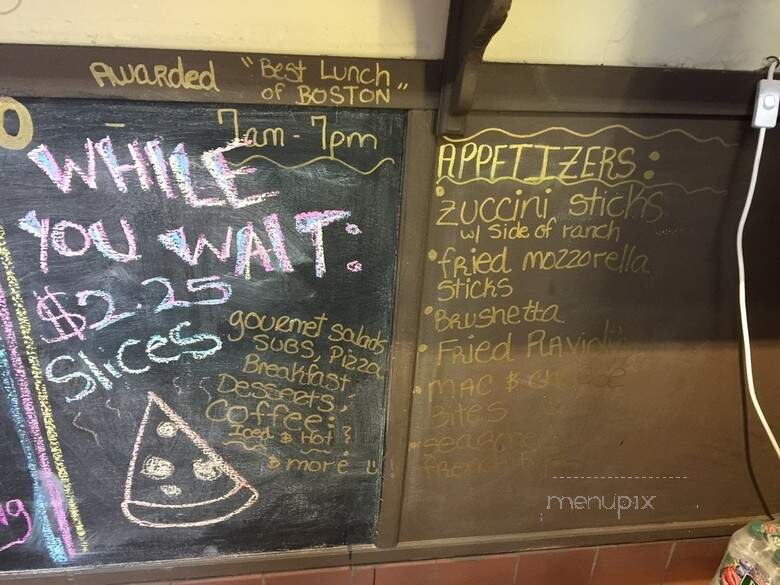 Awarded "Best Lunch
of BOSTON"
7am - 7pm
WHILE
YOU WAIT:
$2.25
Slices
gourmet salads
SUBS, Pizza
Breakfast
Desserts,
Coffee:
Iced & Hot
& more
APPETIZERS:
• zuccini sticks
w/ side of ranch
• fried mozzorella
sticks
• Brushetta
• Fried Ravioli
• MAC & cheese
Bites
• seasoned
French
menupix